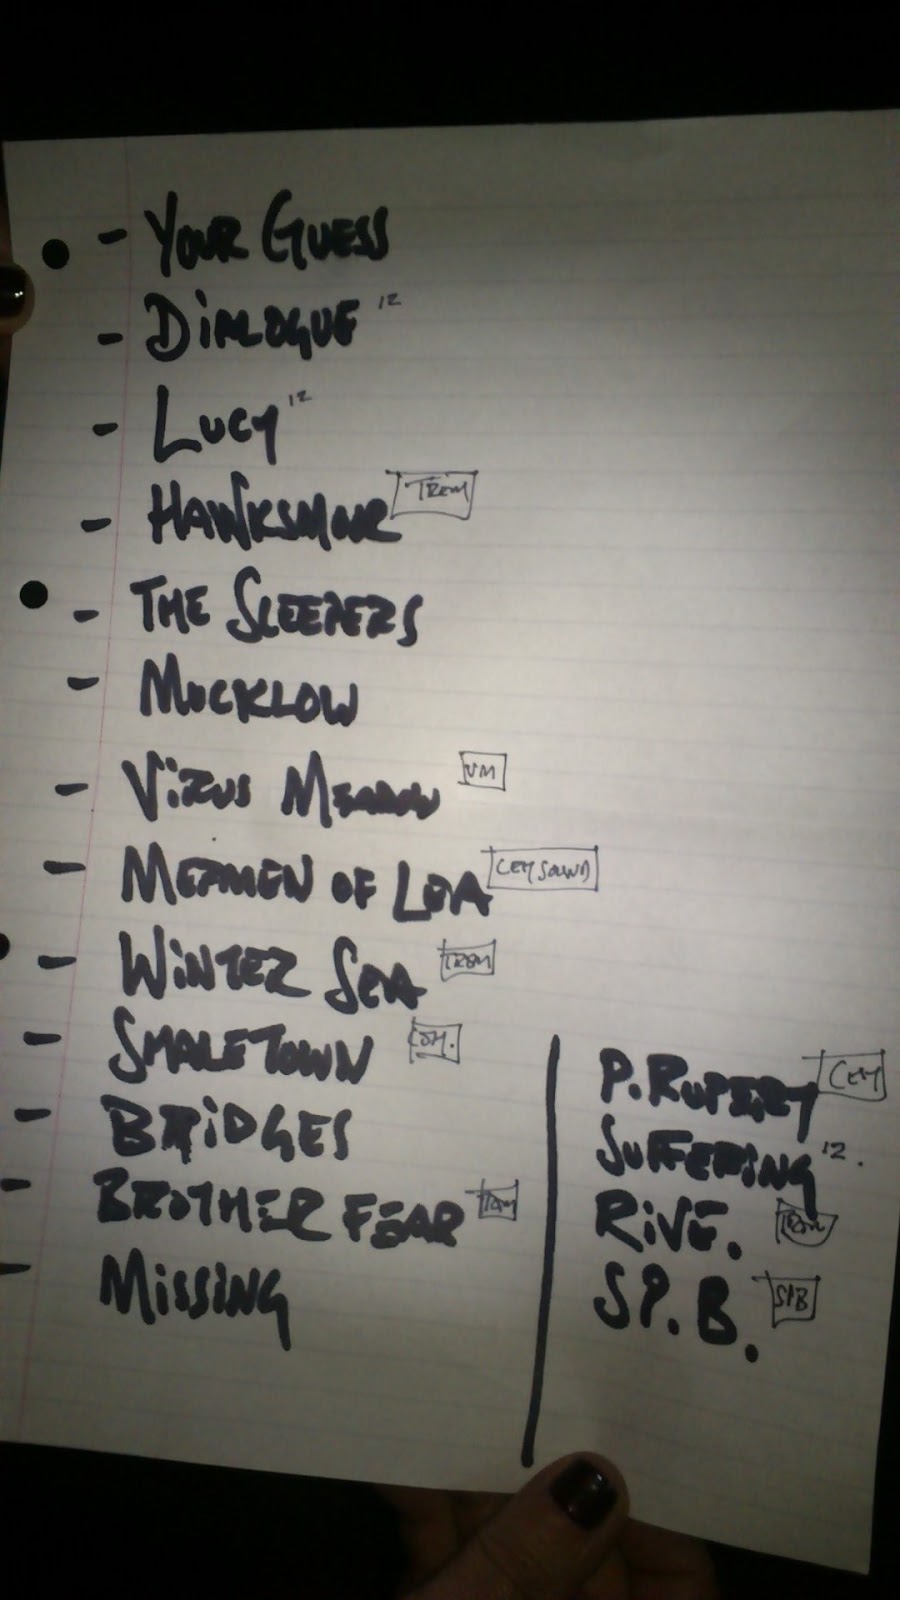 - YOUR GUESS
- DiALOGUE 12
- LUCY 12
- HAWKSMOOR TREM
- THE SLEEPERS
- MUCKLOW
- ViRUS MEADOW VM
- MERMEN OF LEA CEM SOUND
- WiNTER SEA TREM
- SMALETOWN
- BRiDGES
- BROTHER FEAR TREM
MiSSiNG
P. RUPERT CEM
SUFFERING 12.
RiVE. TREM
SP. B. SPB